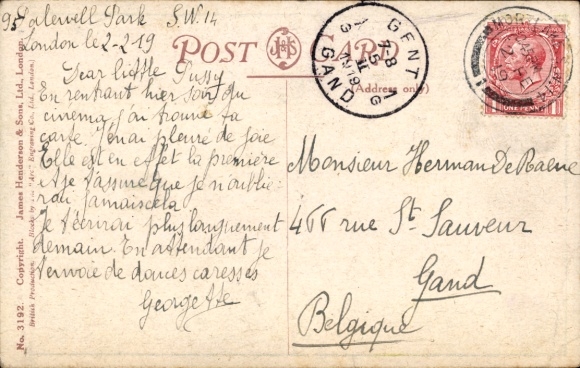 95 Palewell Park S.W. 14
London le 2-2-19
Dear little Pussy
En rentrant hier soir du
cinema j'ai trouvé ta
carte. J'en ai pleuré de joie
Elle est en effet la première
et je t'assure que je n'oublie-
rai jamais cela
Je t'écrirai plus longuement
demain. En attendant je
t'envoie de douces caresses
Georgette
POST CARD
J H & S
(Address only)
GENT
7-8
5 II
1919
GAND
ONE PENNY
Monsieur Herman De Baene
455 rue St. Sauveur
Gand
Belgique
No. 3192. Copyright. James Henderson & Sons, Ltd., London.
British Production. Blocks by Engraving Co., Ltd., London.